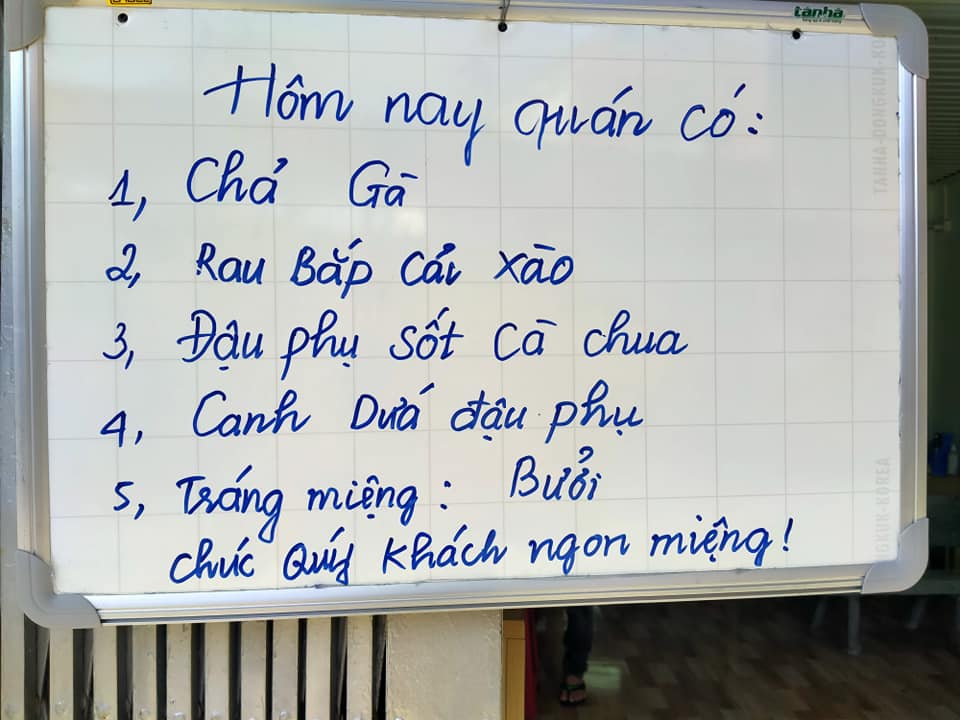 tanhà
TANHA-DONGKUK-KO
Hôm nay quán có:
1, Chả Gà
2, Rau Bắp Cải Xào
3, Đậu phụ Sốt Cà chua
4, Canh Dưá đậu phụ
5, Tráng miệng: Bưởi
chúc Quý Khách ngon miệng!
NGKUK-KOREA